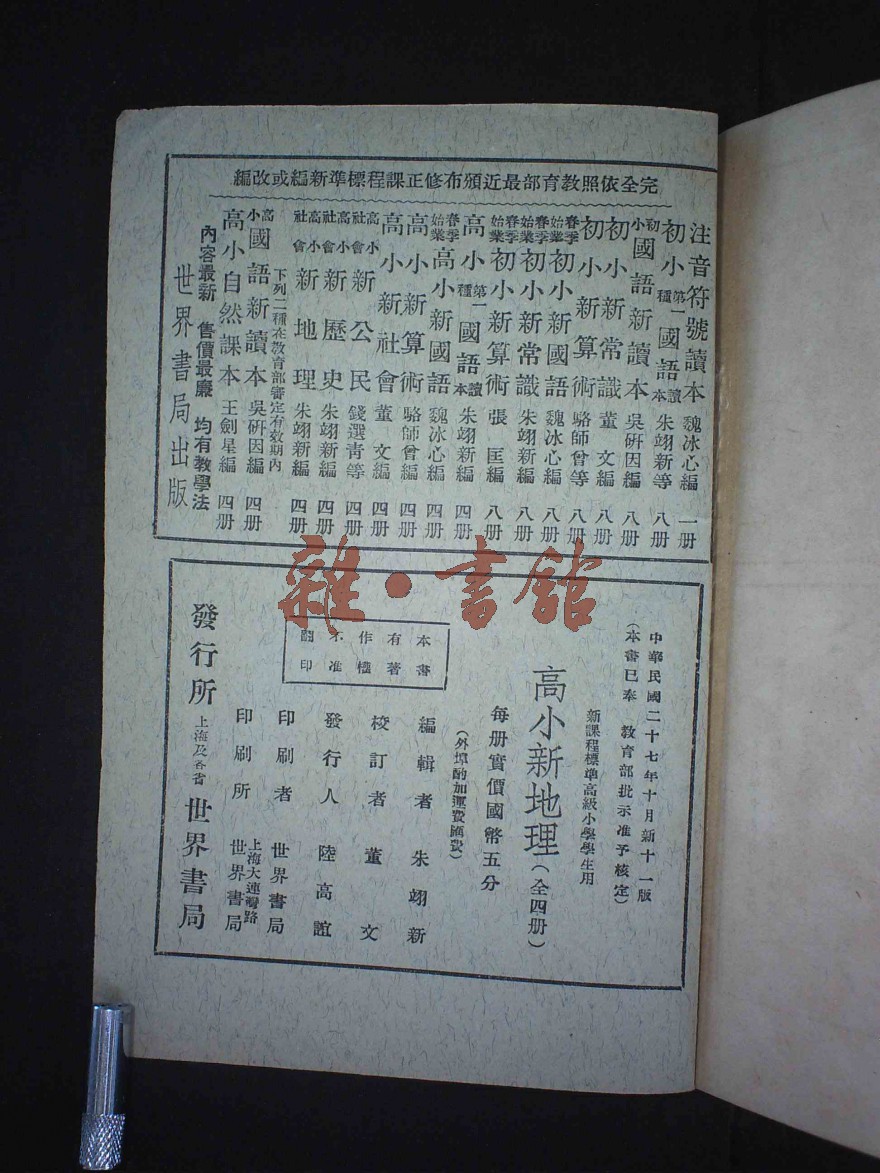 完全依照教育部最近頒布修正課程標準新編或改編
注音符號讀本 魏冰心編 一册
初小第一種國語讀本 朱翊新等 八册
初小國語新讀本 吳研因編 八册
初小新常識 董文編 八册
初小新算術 駱師曾等 八册
春季始業初小新國語 魏冰心編 八册
春季始業初小新常識 朱翊新編 八册
春季始業初小新算術 張匡編 八册
高小第一種國語讀本 朱翊新編 四册
春季始業高小新國語 魏冰心編 四册
高小新算術 駱師曾編 四册
高小新社會 董文編 四册
高小社會新公民 錢選青等 四册
高小社會新歷史 朱翊新編 四册
高小社會新地理 朱翊新編 四册
下列二種在教育部審定有效期內
高小國語新讀本 吳研因編 四册
高小自然課本 王劍星編 四册
內容最新 售價最廉 均有教學法
世界書局出版
雜·書館
中華民國二十七年十月新十一版
(本書已奉 教育部批示准予核定)
新課程標準高級小學學生用
高小新地理(全四册)
每册實價國幣五分
(外埠酌加運費匯費)
本書
有著
作權
不准
翻印
編輯者 朱翊新
校訂者 董文
發行人 陸高誼
印刷者 世界書局
印刷所 上海大連灣路世界書局
發行所 上海及各省世界書局